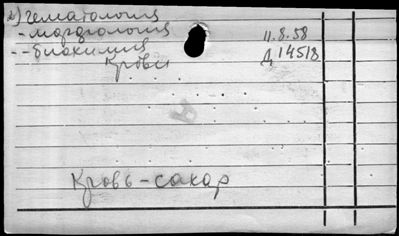 2) гематология
- морфология 11.8.58
-- биохимия Д 14518
крови
Кровь - сахар